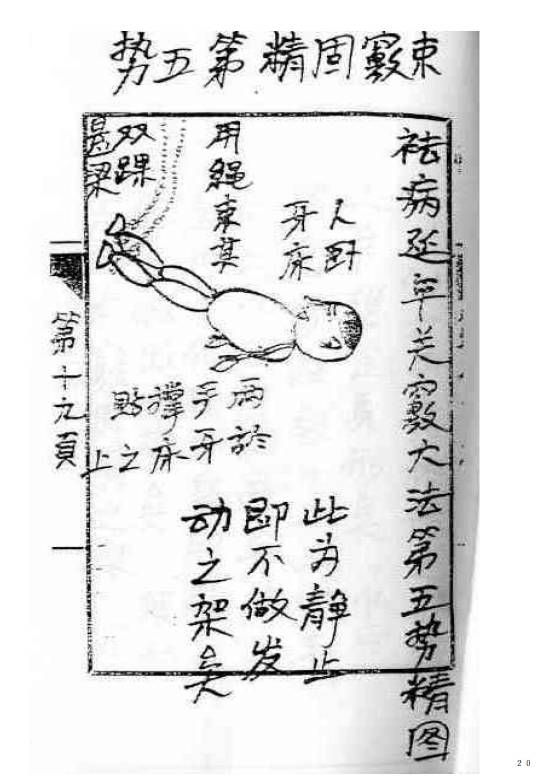 束竅固精第五势
祛病延年关竅大法第五势精图
人卧
牙床
用绳束其
双踝
悬梁
两
手撑
於牙床之上
此为静止
即不做发
动之架矣
第十九頁
20